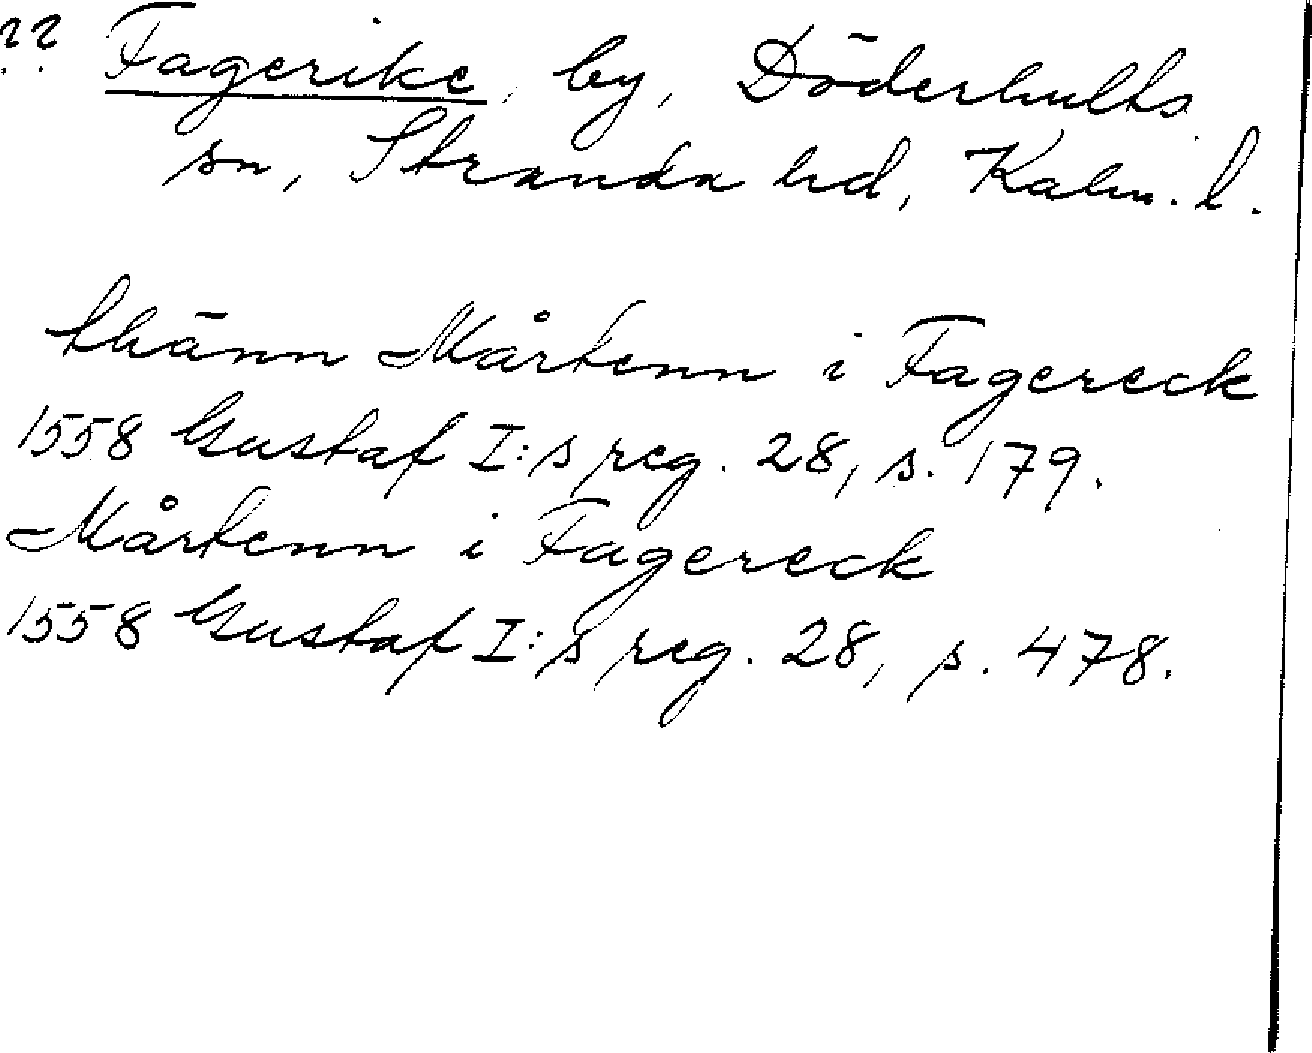 ?? Fagerike, by, Döderhults
sn, Stranda hd, Kalm. l.
thänn Mårtenn i Fagereck
1558 Gustaf I:s reg. 28, s. 179.
Mårtenn i Fagereck
1558 Gustaf I:s reg. 28, s. 478.